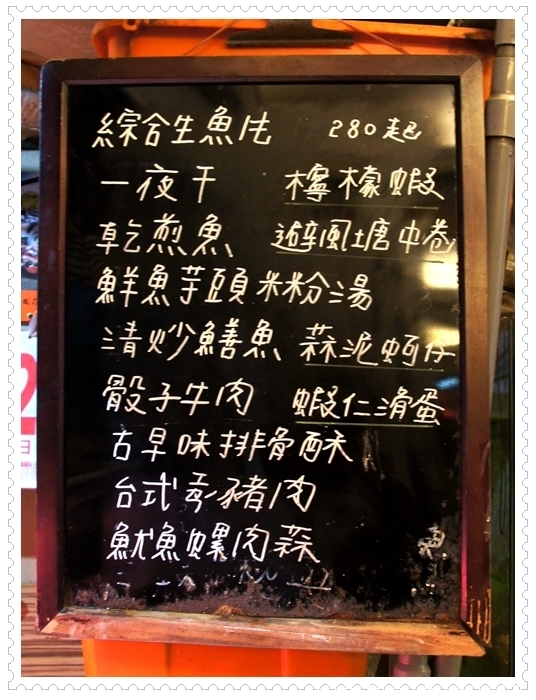 綜合生魚片 280起
一夜干 檸檬蝦
乾煎魚 避風塘中卷
鮮魚芋頭米粉湯
清炒鱔魚 蒜泥蚵仔
骰子牛肉 蝦仁滑蛋
古早味排骨酥
台式 豬肉
魷魚螺肉蒜